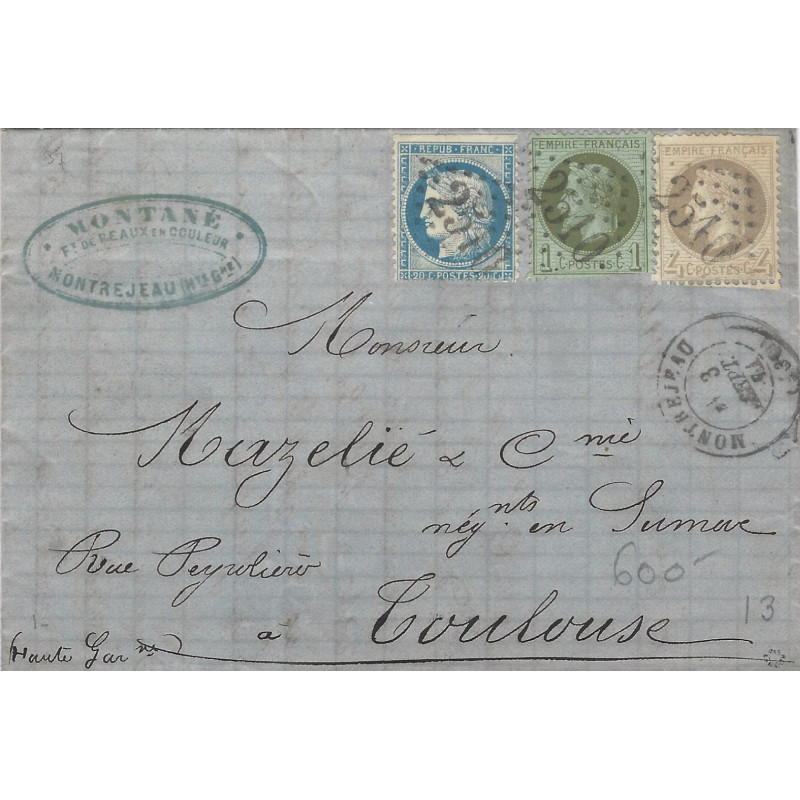 MONTANÉ
Ft DE PEAUX EN COULEUR
MONTREJEAU (Hte Gne)
REPUB. FRANC.
20 C. POSTES 20 C.
EMPIRE FRANÇAIS
1 C. POSTES C. 1
EMPIRE FRANÇAIS
4 C. POSTES C. 4
2510
2510
MONTREJEAU
3
SEPT.
71
Monsieur
Mazelié & Cnie
négnts en Sumac
Rue Peyrolière
à Toulouse
(Haute Garne)
600-
13